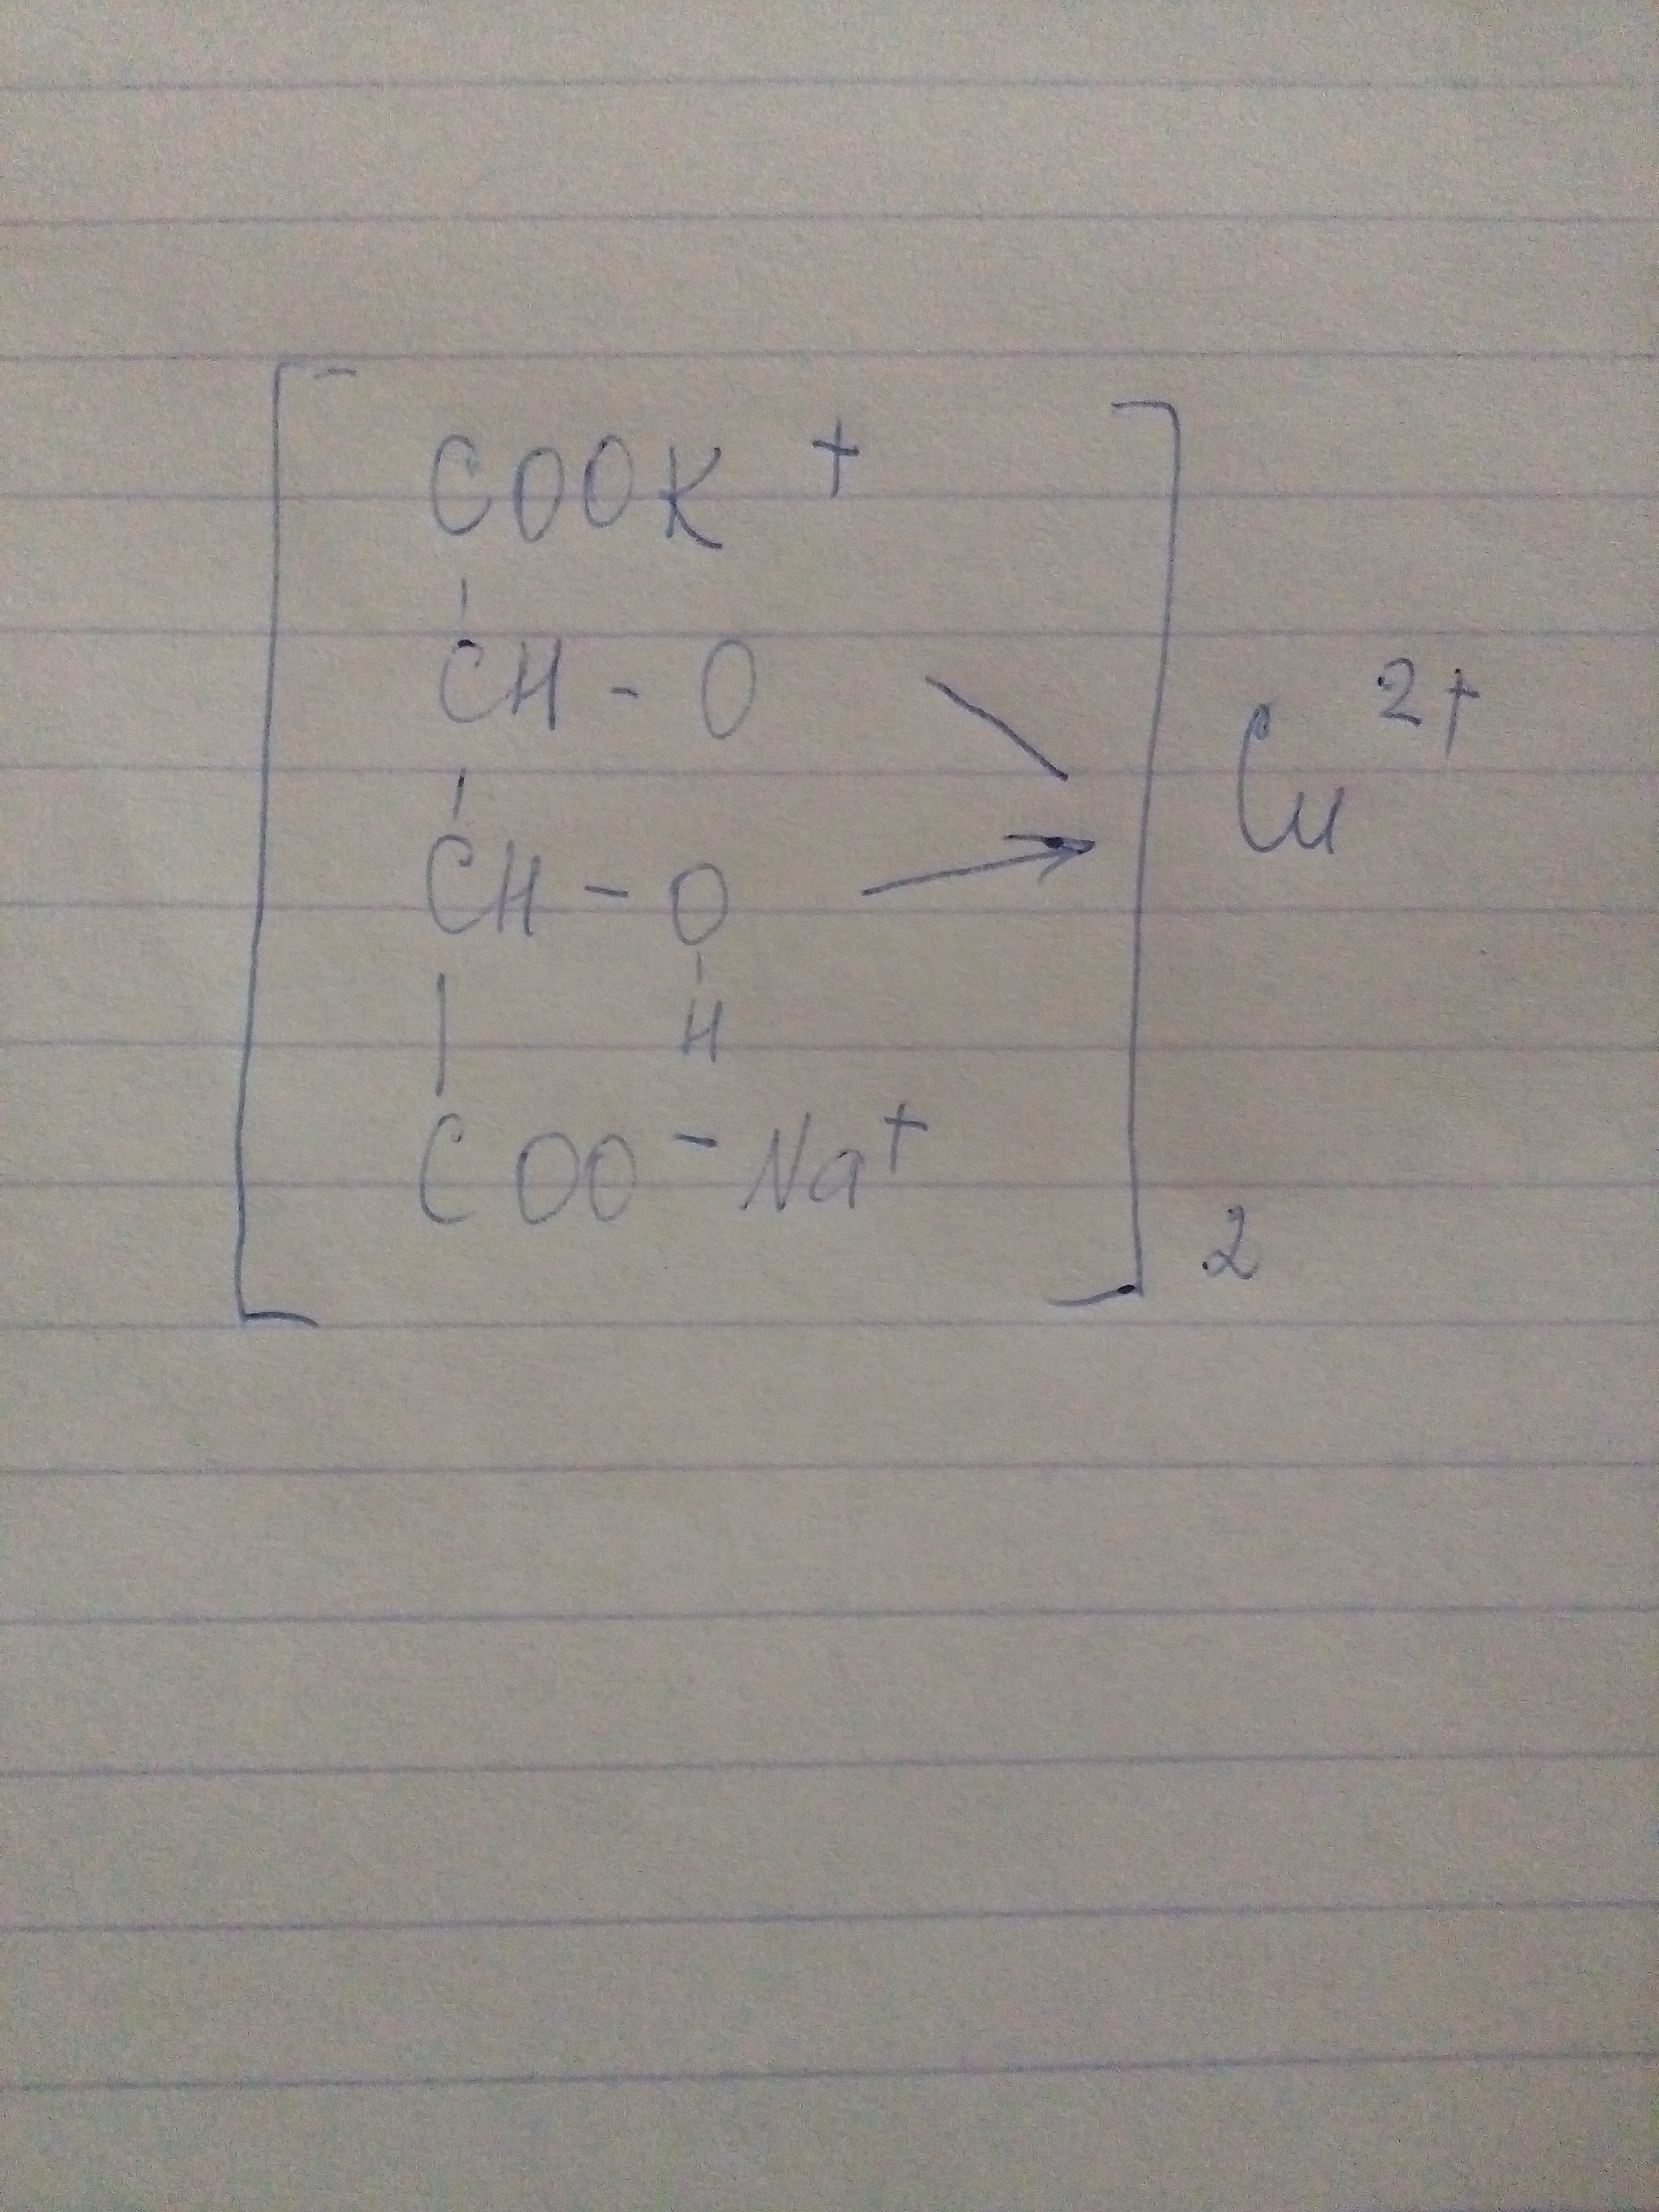 COOK +
CH - O
Cu 2+
CH - O
H
COO - Na+
2